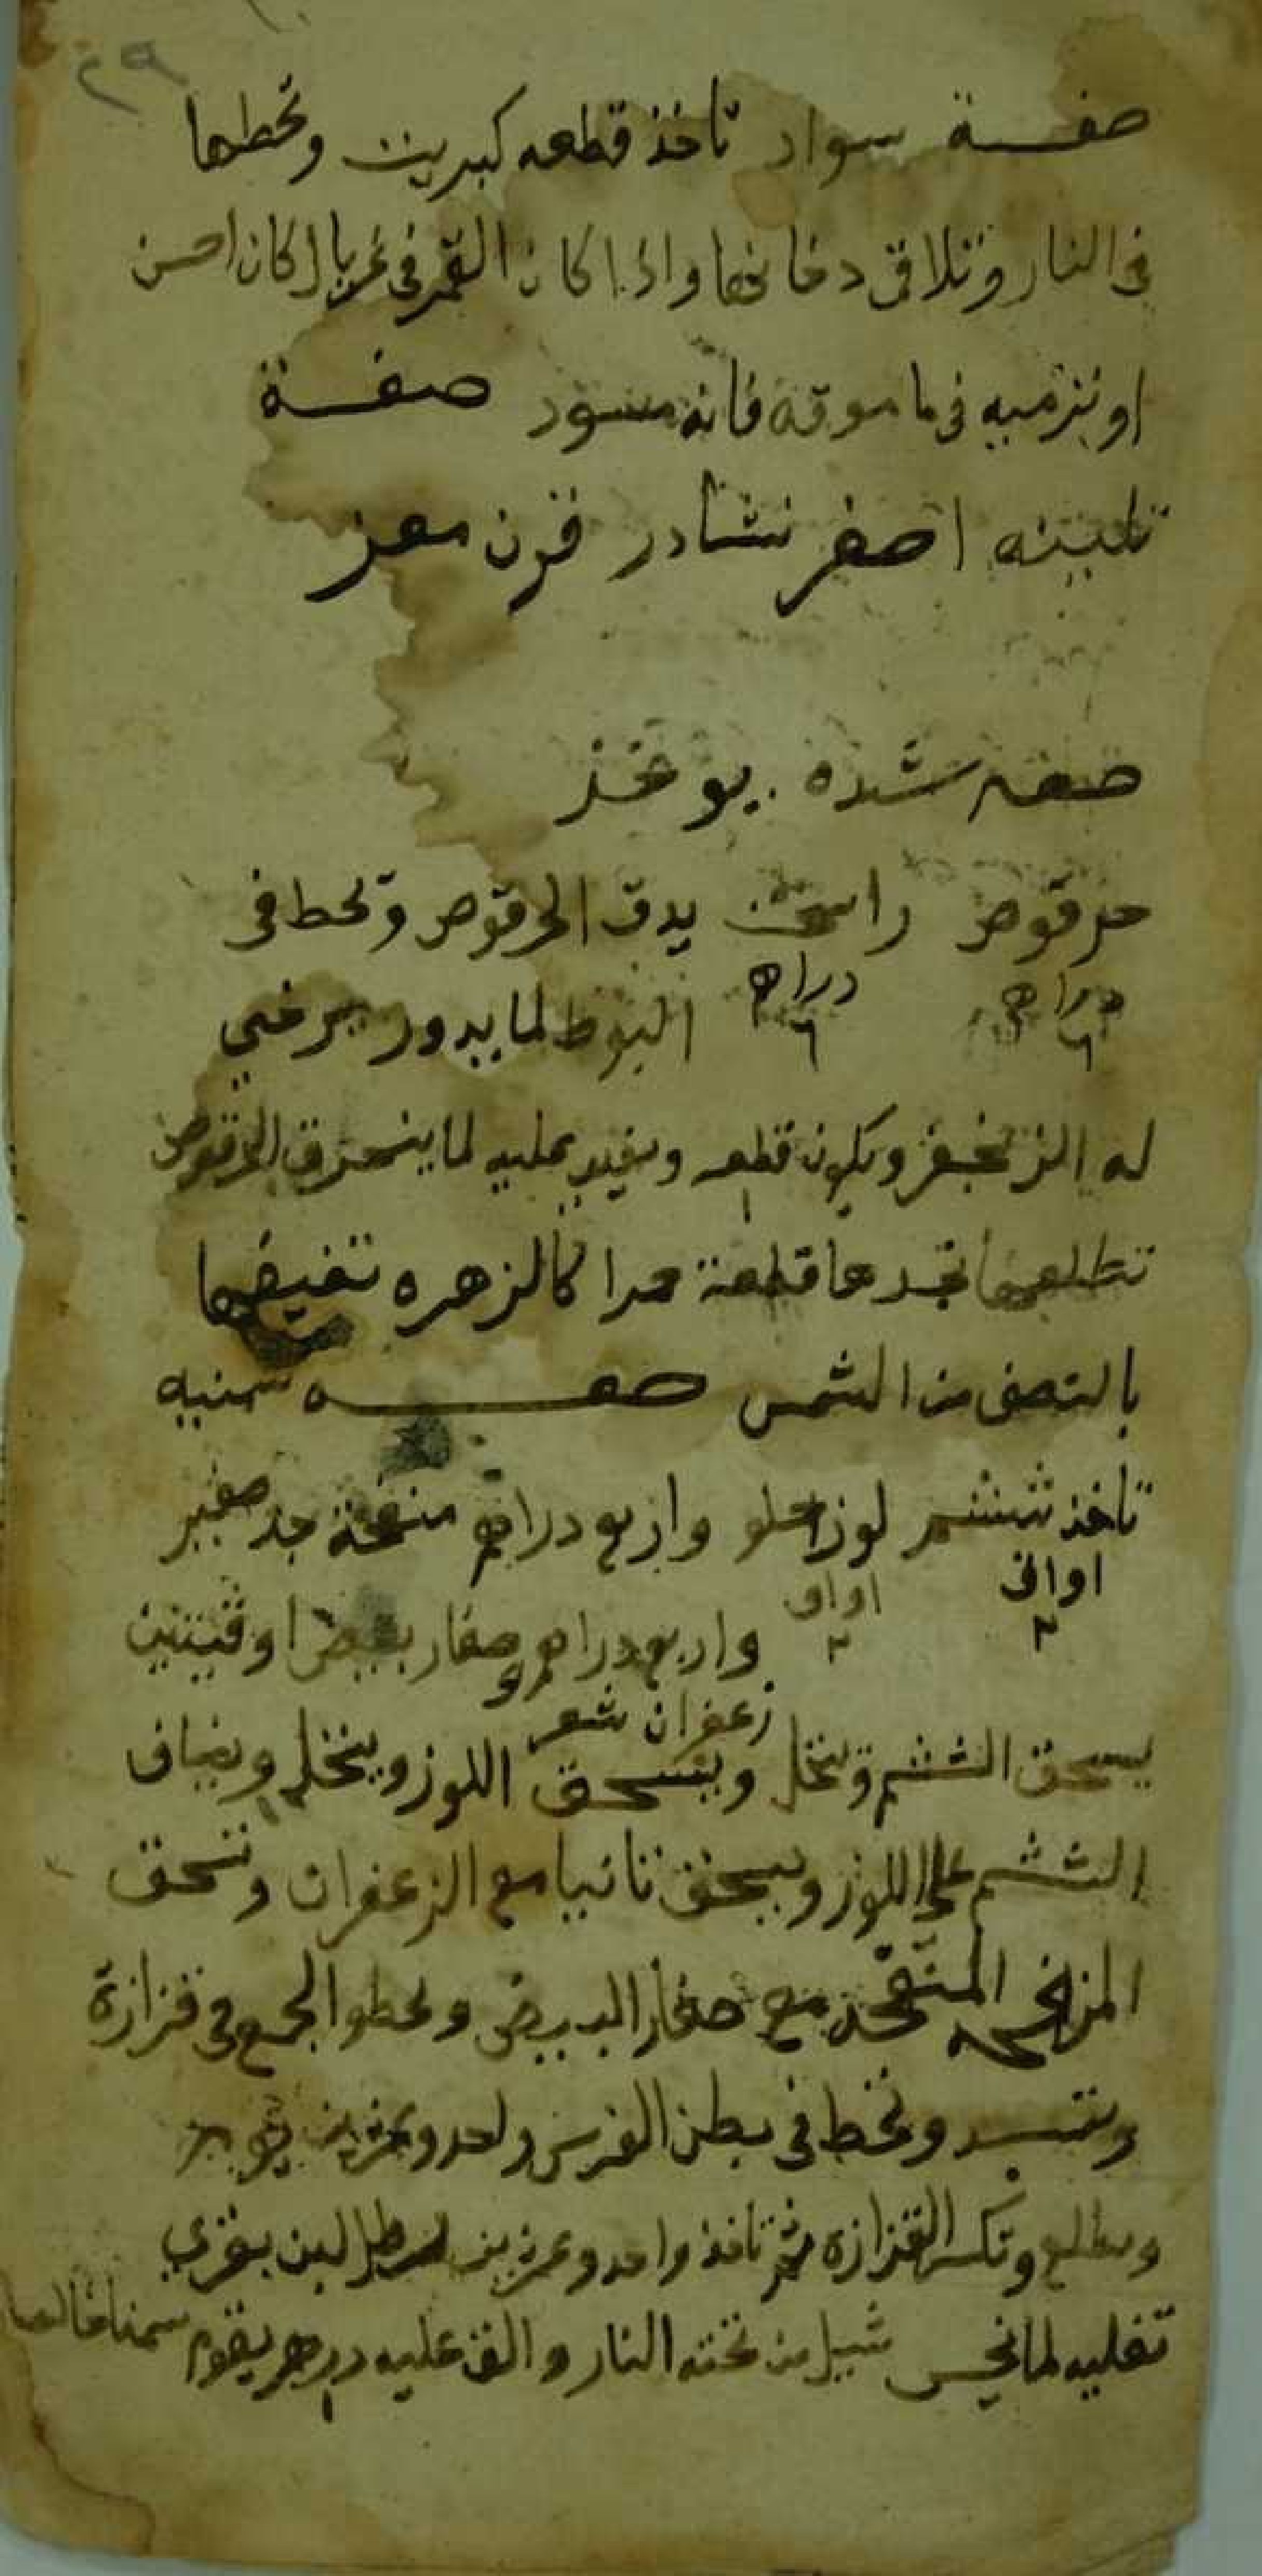 ٢٩
صفـــة سواد تاخذ قطعه كبريت وتحطها
في النار وتلاقي دخانها واذا كان القمر في غربال كان احسن
او ترميه في ما موقة فانه مسود صفـــة
تلبينه اصفر نشادر قرن معز
صفه شده يوخذ
حرقوص راسخت يدق الحرقوص وتحط في
دراهم ٦ دراهم ٦ البوط لما يدور ترخي
له الزنجفر ويكون قطعه ويقيد عليه لما ينحرق الحرقوص
تطلعها تجدها قطعة حمرا كالزهره تضيفها
بالنصف من الشمس صفـــه سمنيه
تاخذ ششم لوز حلو واربع دراهم منفحة جد صغير
اواقي ٢ اواق ٢ واربع دراهم وصفار بيض اوقيتين
زعفران شعر
يسحق الششم وتنخل وينسحق اللوز وينخل ويضاف
الششم على اللوز ويسحق ثانيا مع الزعفران وتسحق
المنفحه مع صفار البيض وتحطو الجمع في قزازة
وتنسد وتحط في بطن الفرس واحد وعشرين
وتطلع وتكسر القزازه ثم تاخذ واحد وعشرين رطل لبن بقري
تغليه لما شيل من تحته النار والق عليه درهم يقوم سمنا خالصا